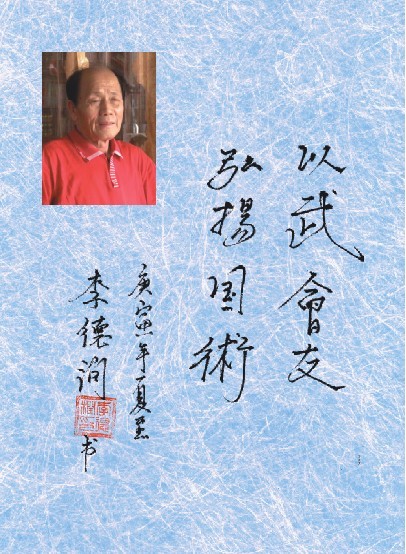 以武會友
弘揚国術
庚寅年夏至
李德润书